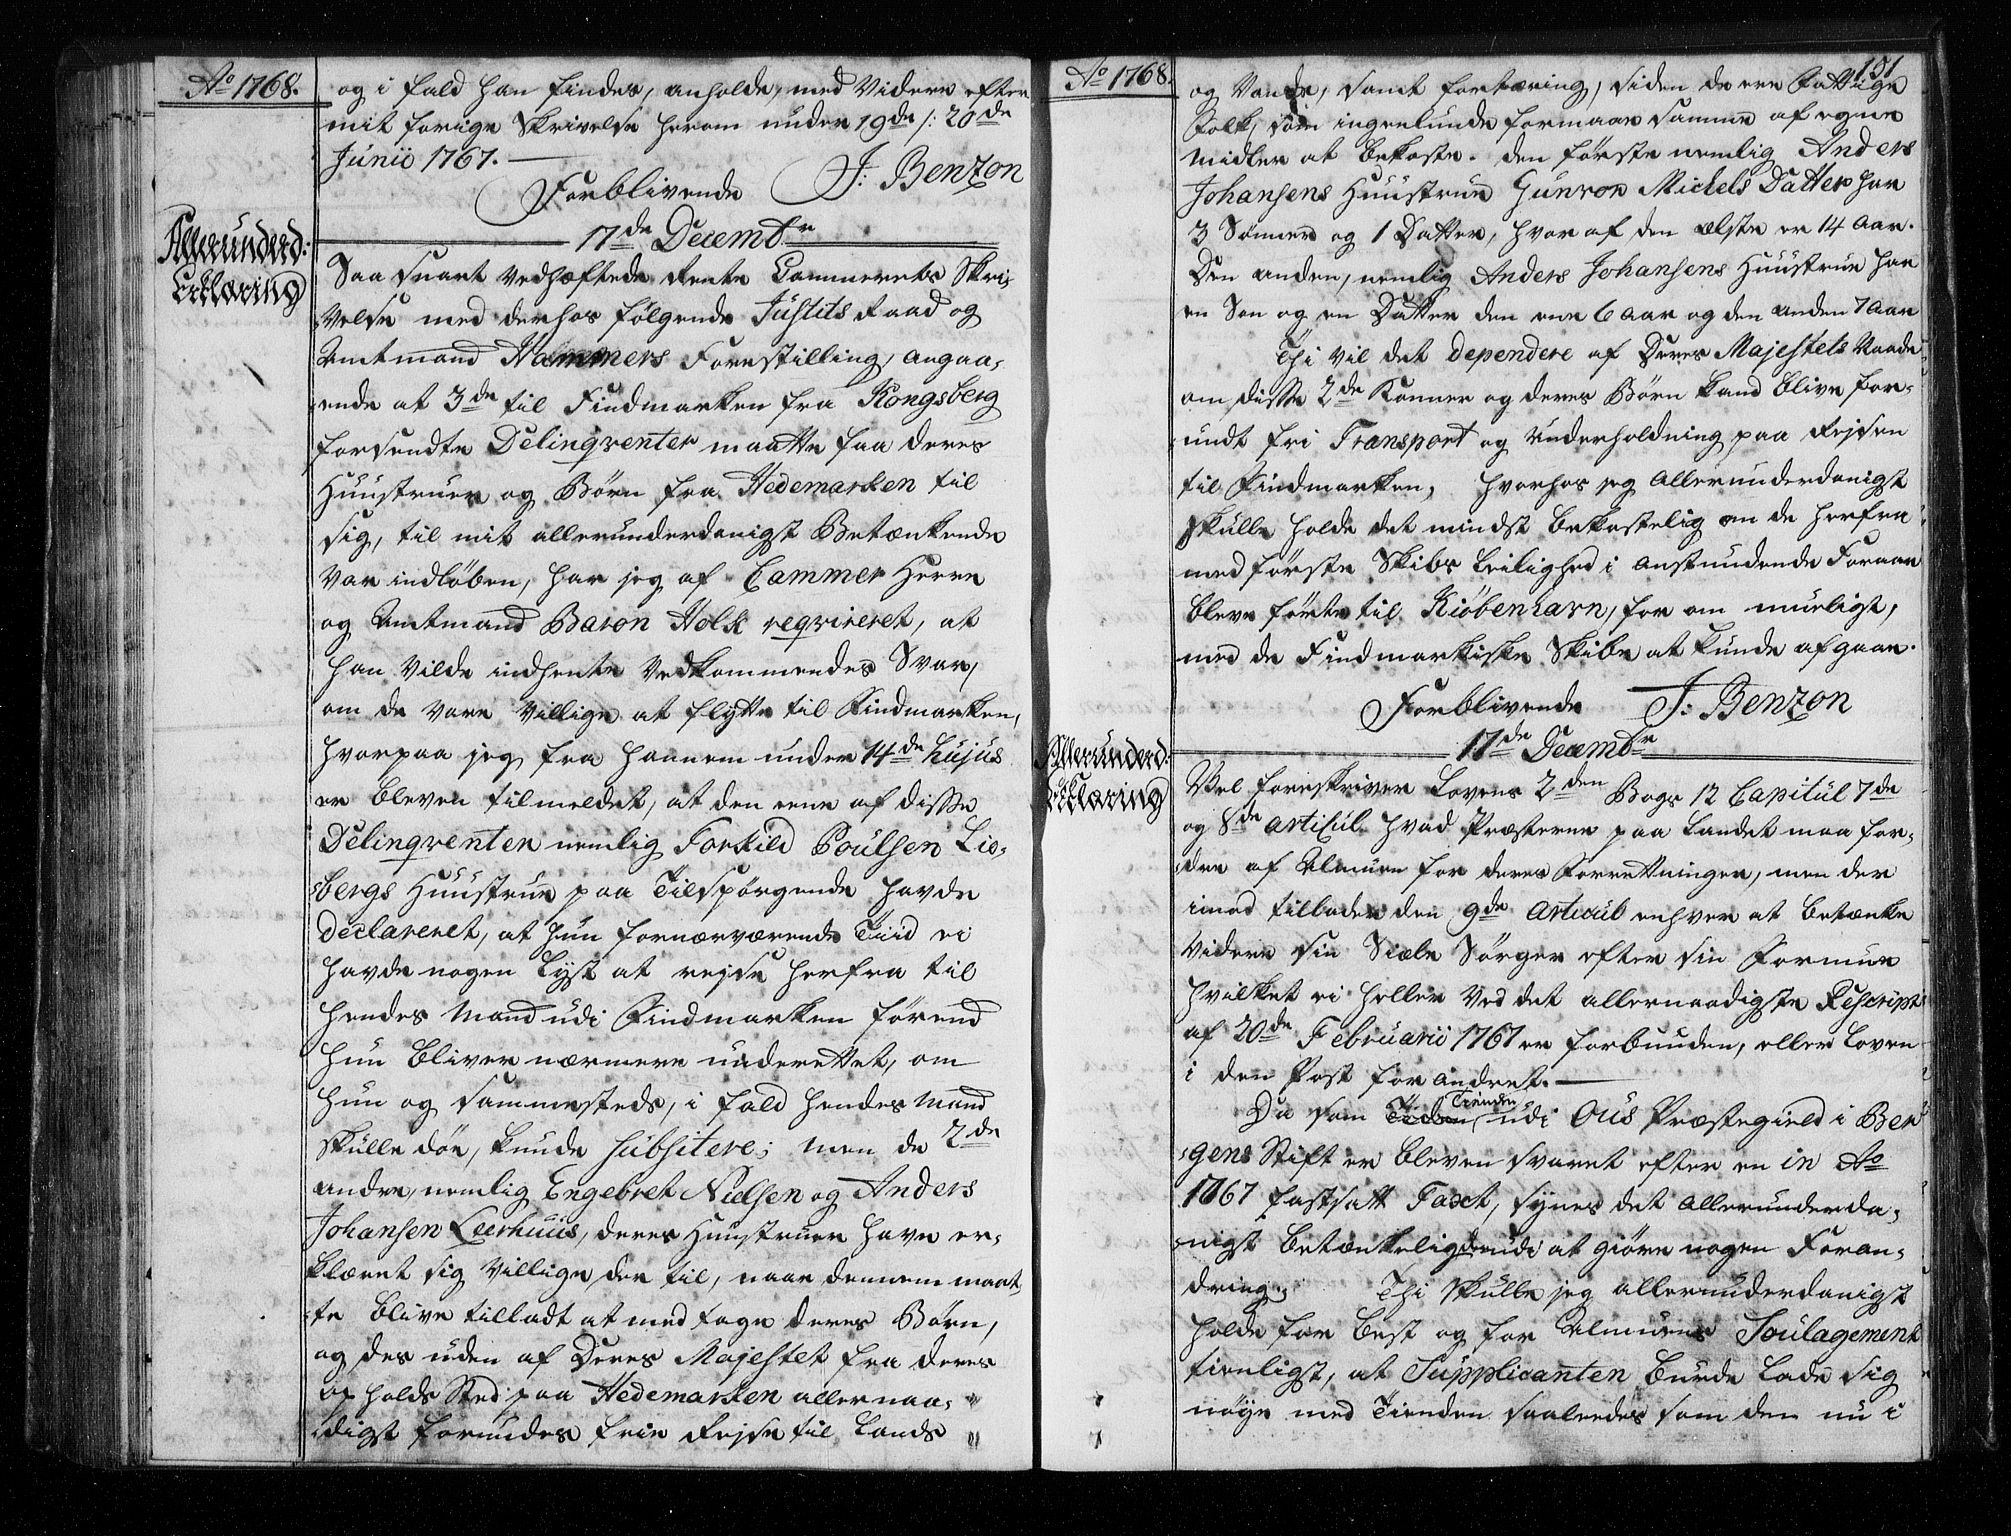 Ao 1768.
og i fald han findes, anholde, med Videre efter
mit forige Skrivelse herom under 19de /: 20de
Junii 1767.
Forblivende J: Benzon
17de Decembr
Allerunderd:
Erklæring
Saa snart vedhæftede Rente Cammerets Skri-
velse med derhos følgende Justits Raad og
Amtmand Hammers Forestilling, angaa-
ende at 3de til Findmarken fra Kongsberg
forsendte Delinqventer maatte faa deres
Huustruer og Børn fra Hedemarken til
sig, til mit allerunderdanigst Betænkende
var indløben, har jeg af Cammer Herre
og Amtmand Baron Holk reqvireret, at
han vilde indhente Vedkommendes Svar,
om de vare villige at flytte til Findmarken,
hvorpaa jeg fra hannem under 14de hujus
er bleven tilmeldet, at den eene af disse
Delinqventer nemlig Torkild Poulsen Lie-
bergs Huustrue paa Tilspørgende havde
declareret, at hun for nærværende Tiid ei
havde nogen Lyst at rejse herfra til
hendes Mand udi Findmarken førend
hun bliver nærmere underettet, om
hun og sammesteds, i fald hendes Mand
skulle døe, kunde subsitere; men de 2de
andre, nemlig Engebret Nielsen og Anders
Johansen Leerhuus, deres Huustruer have er-
klæret sig villige der til, naar dennem maat-
te blive tilladt at med tage deres Børn,
og des uden af Deres Majestet fra deres
op holds Sted paa Hedemarken allernaa-
digst forundes frie Rejse til Lands
Ao 1768.
151
og Vands, samt fortæring, siden de ere fattige
Folk, som ingenlunde formaae samme af egne
midler at bekoste. den første nemlig Anders
Johansens Huustrue Gunvor Michels Datter har
3 Sønner og 1 Datter, hvor af den ælste er 14 Aar.
Den anden, nemlig Anders Johansens Huustrue har
en Søn og en Datter den ene 6 Aar og den anden 7 Aar
Thi vil det dependere af Deres Majestets Naade
om disse 2de Konner og deres Børn kand blive for-
undt fri Transport og Underholdning paa Rejsen
til Findmarken, hvorhos jeg Allerunderdanigst
skulle holde det mindst bekostelig om de herfra
med første Skibs Leilighed i anstundende Foraar
bleve førte til Kiøbenhavn, for om mueligt,
med de Findmarkiske Skibe at kunde afgaae.
Forblivende J: Benzon
17de Decembr
Allerunderd:
Erklæring
Vel foreskriver Lovens 2den Bogs 12 Capitul 7de
og 8de articul hvad Præsterne paa Landet maa for-
dre af Almuen for deres Forretninger, men der
imod tillader den 9de Articul enhver at betænke
videre sin Siæle Sørger efter sin Formue
hvilket ei heller ved det allernaadigste Rescript
af 20de Februarii 1767 er forbunden, eller Loven
i den Post forandret.
Da som Tienden udi Ous Præstegield i Ber-
gens Stift er bleven svaret efter en in Ao
1767 fastsatt Taxt, synes det Allerunderda-
nigst betænkelig derudi at giøre nogen Foran-
dring; Thi skulle jeg allerunderdanigst
holde for best og for Almuens Soulagement
tienligst, at Supplicanten burde lade sig
nøye med Tienden saaledes som den nu i